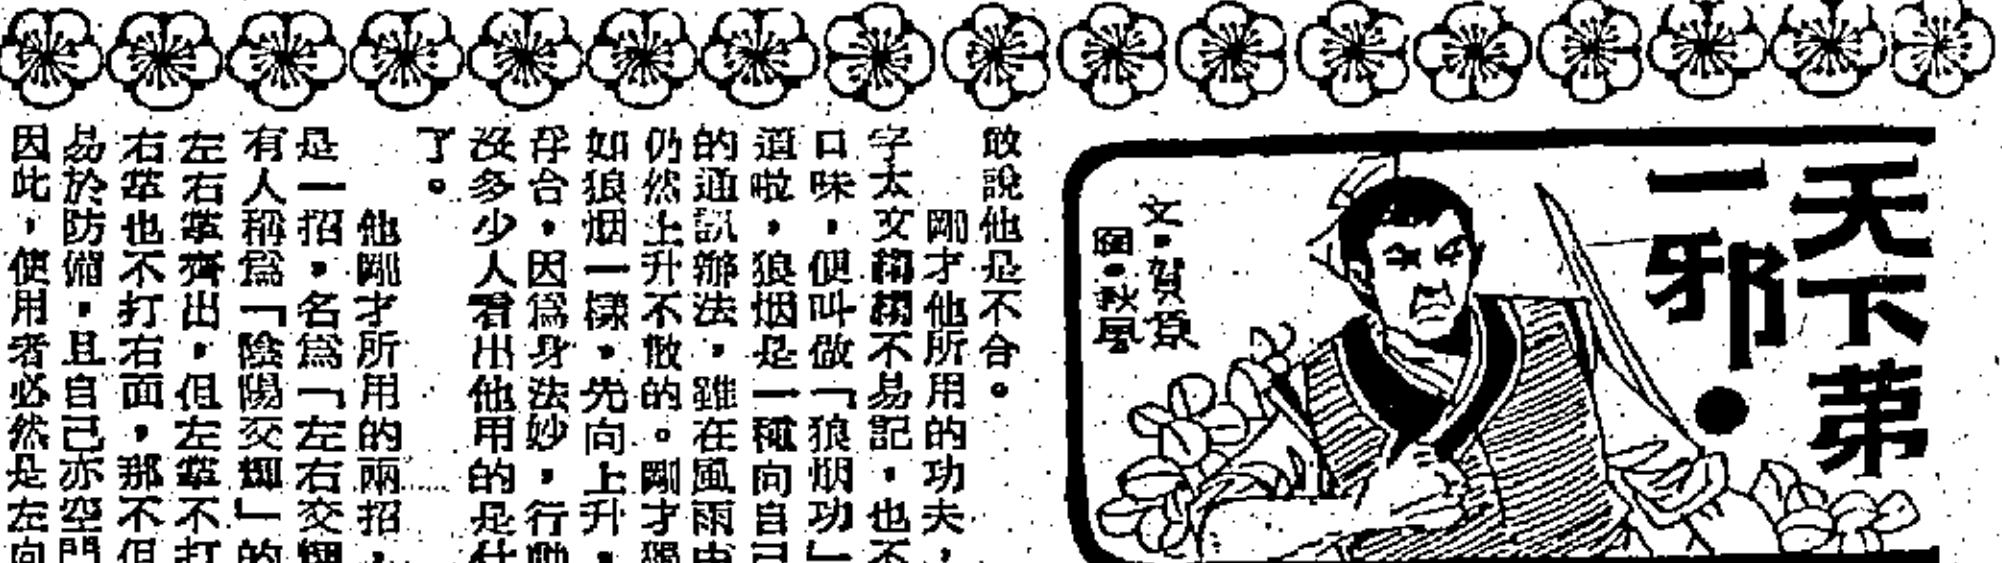 天下第
一邪·
文·賀
圖·秋風
敢說他是不合。
剛才他所用的功夫，
字太文縐縐不易記，也不
口味，便叫做「狼烟功」
道啦，狼烟是一種向自己
的通訊辦法，雖在風雨中
仍然上升不散的。剛才獨
如狼烟一樣，先向上升，
浮合，因爲身法妙，行動
沒多少人看出他用的是什
了。
他剛才所用的兩招，
是一招，名爲「左右交輝
有人稱爲「陰陽交輝」的
左右掌齊出，但左掌不打
右掌也不打右面，那不但
易於防備，且自己亦空門
因此，使用者必然是左向